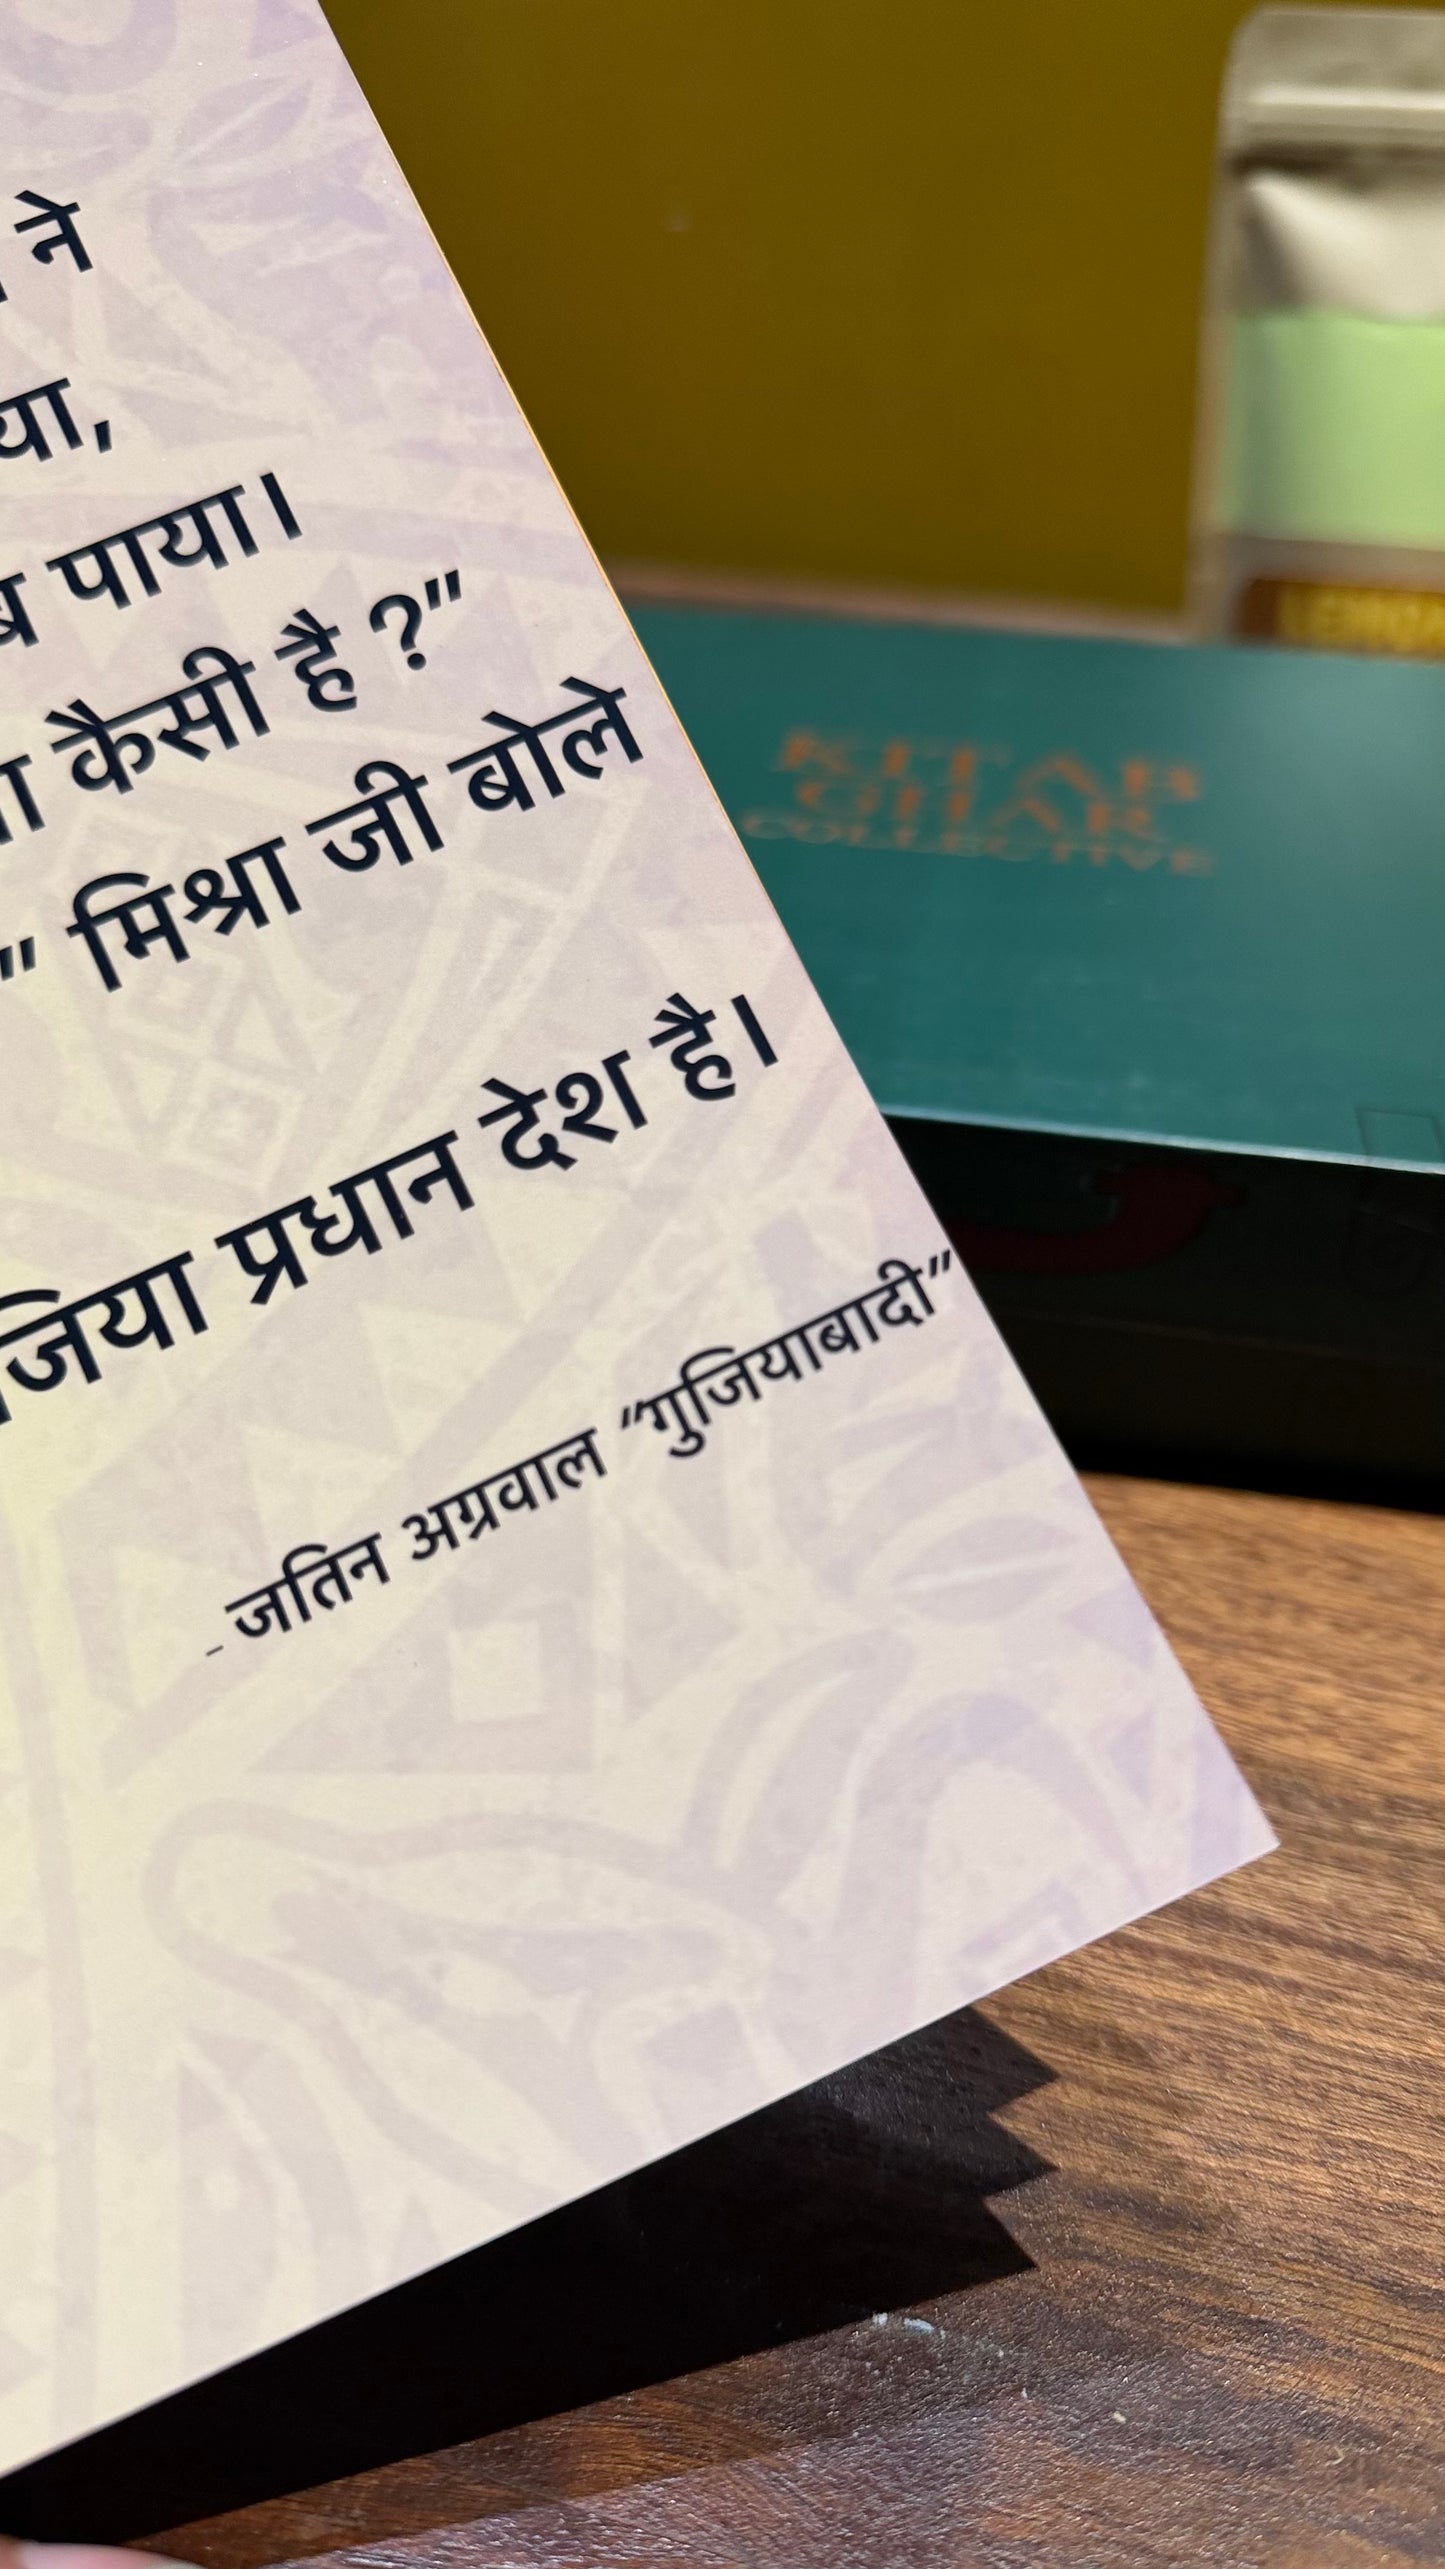 ने
या,
पाया।
कैसी है ?”
” मिश्रा जी बोले
जिया प्रधान देश है।
_ जतिन अग्रवाल “गुजियाबादी”
KITAB
GHAR
COLLECTIVE